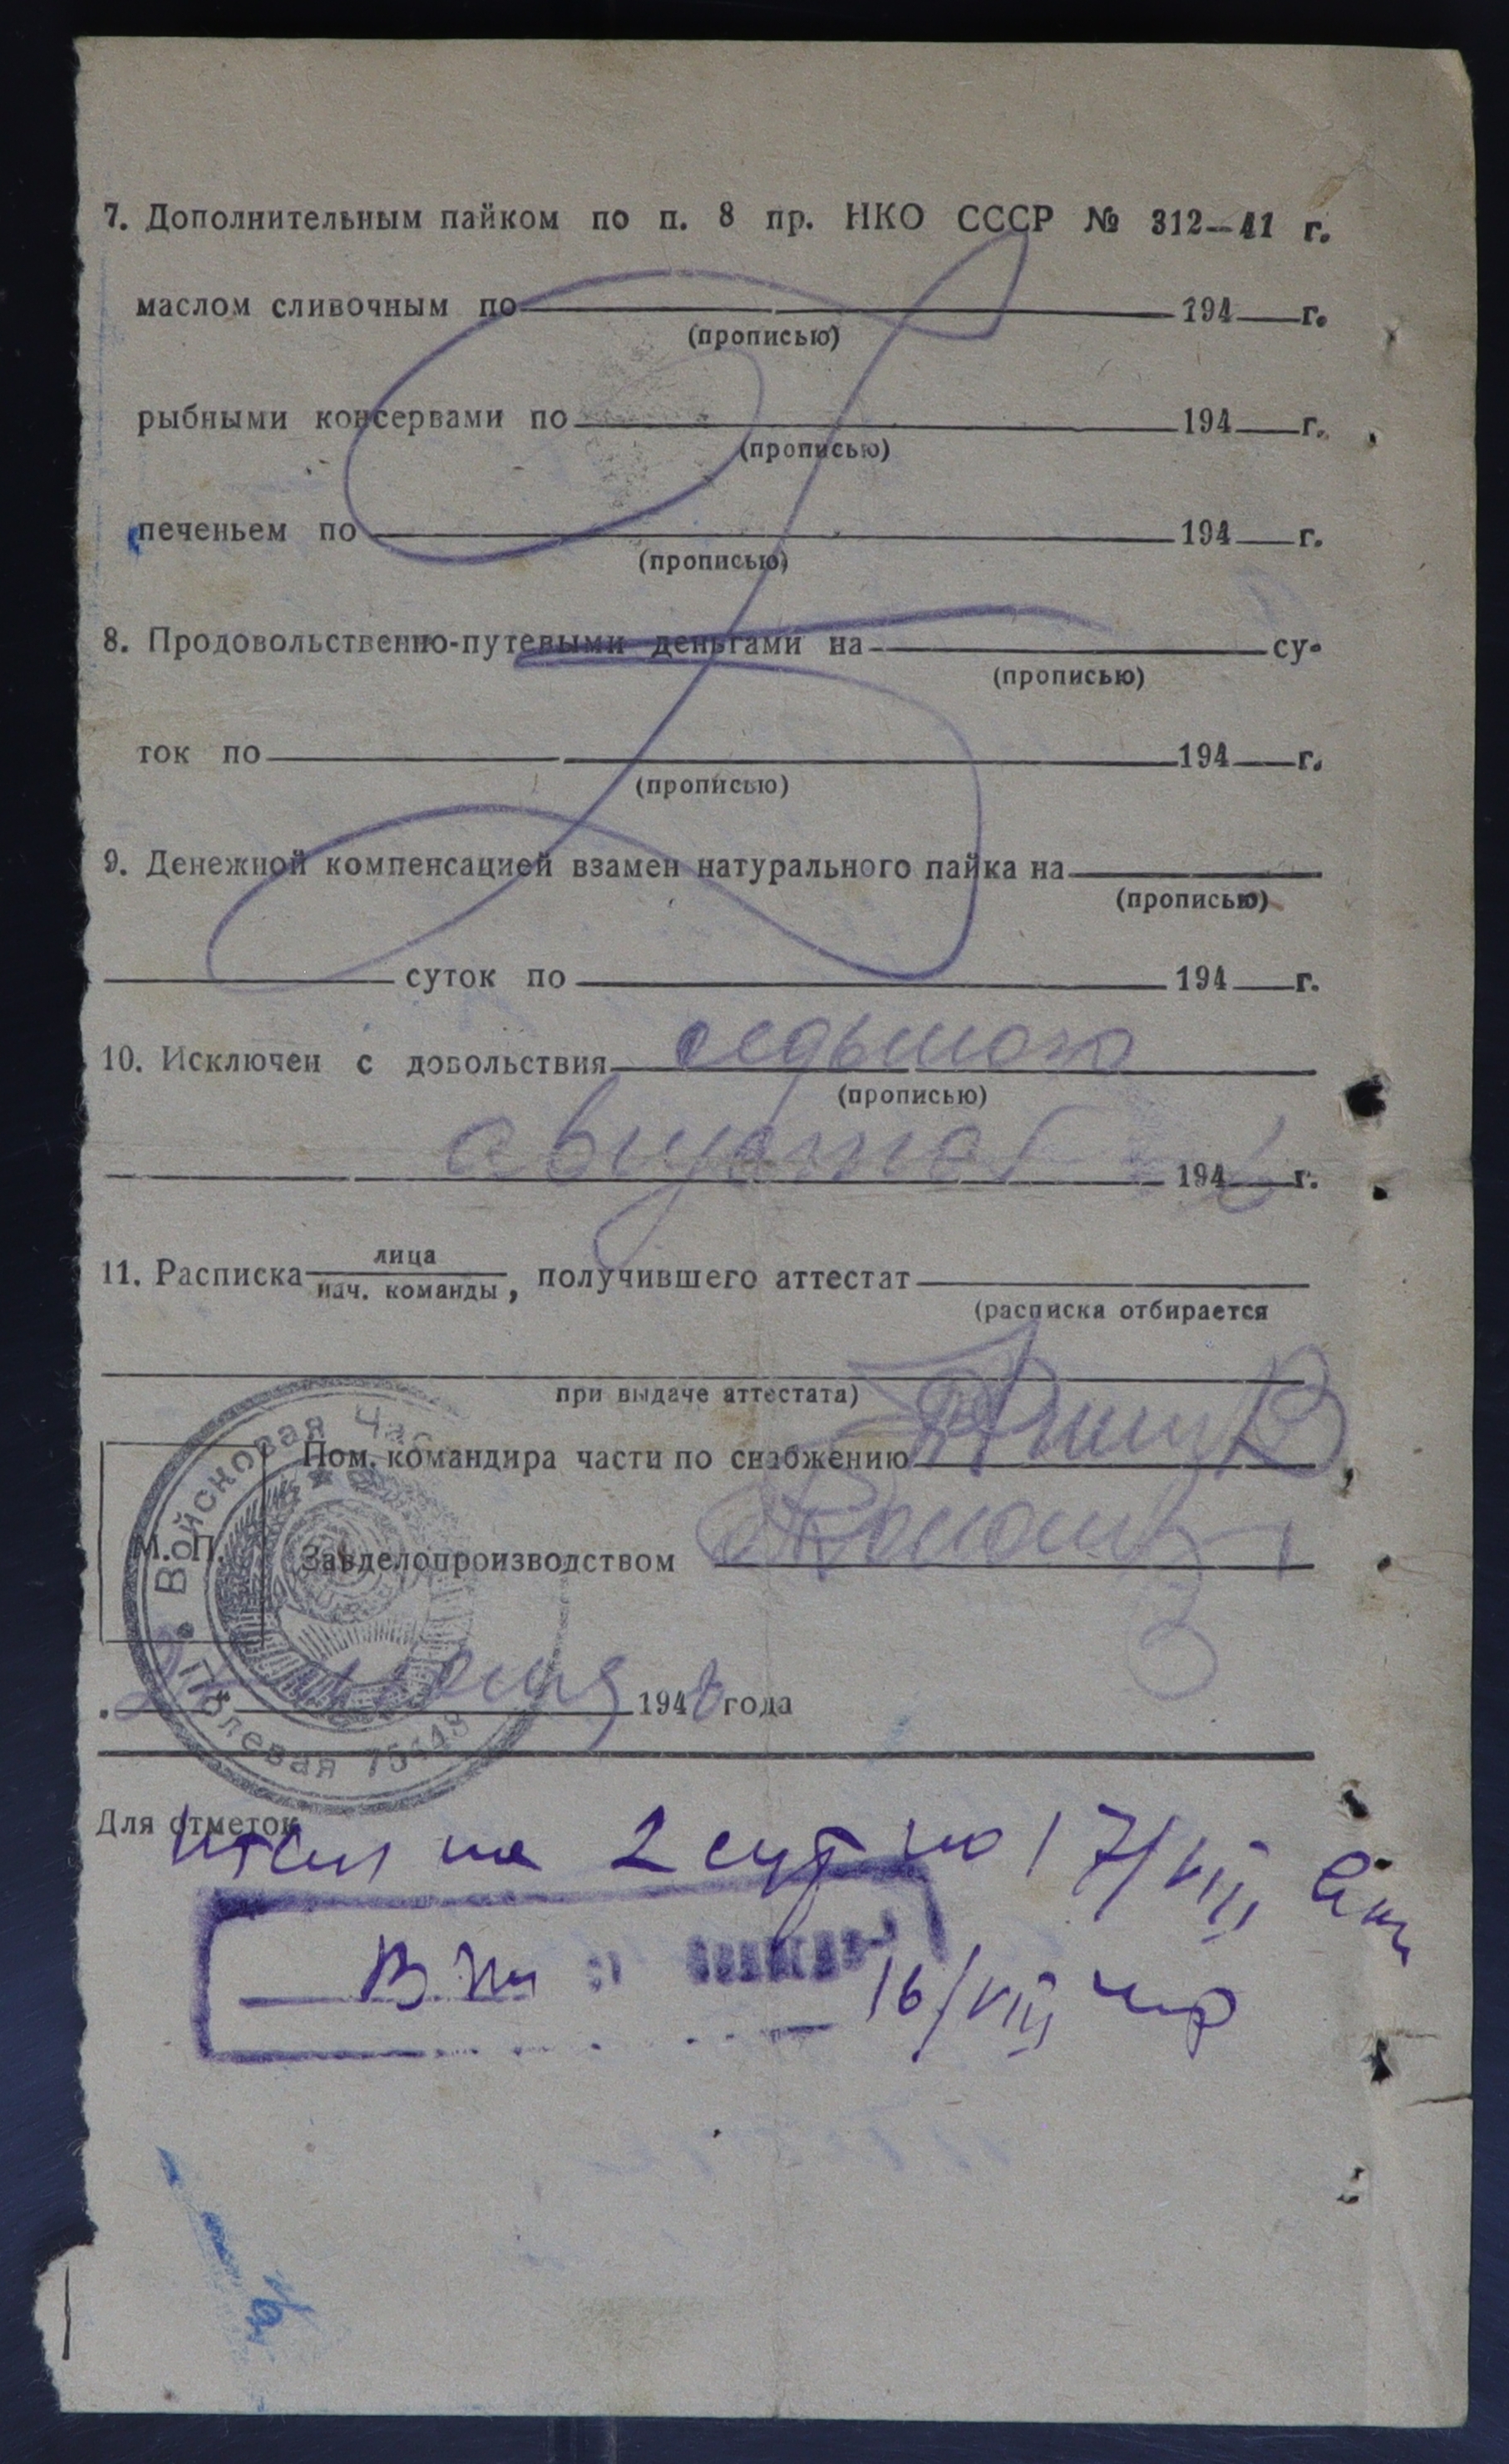 7. Дополнительным пайком по п. 8 пр. НКО СССР № 312—41 г.
маслом сливочным по 194 г.
(прописью)
рыбными консервами по 194 г.
(прописью)
печеньем по 194 г.
(прописью)
8. Продовольственно-путевыми деньгами на су-
(прописью)
ток по 194 г.
(прописью)
9. Денежной компенсацией взамен натурального пайка на
(прописью)
суток по 194 г.
10. Исключен с довольствия седьмого
(прописью)
августа 194 г.
11. Расписка лица
нач. команды, получившего аттестат
(расписка отбирается
при выдаче аттестата)
Войсковая Час
Пом. командира части по снабжению
М. П.
Завделопроизводством
194 года
Полевая
Для отметок
на 2 сут по 17/VIII
16/VIII